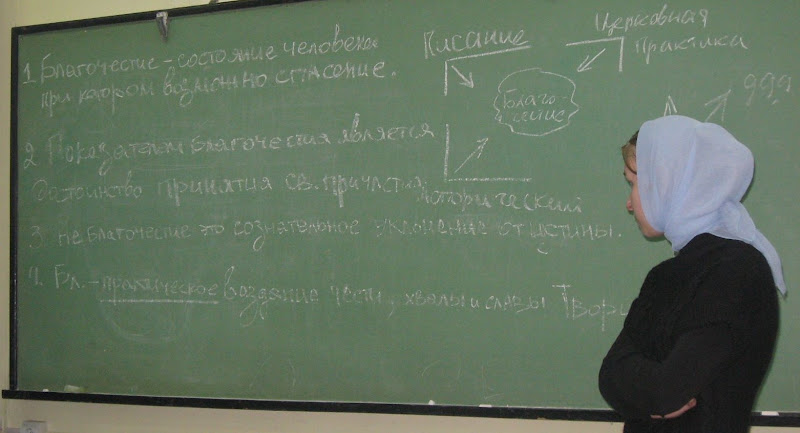 1. Благочестие – состояние человека
при котором возможно спасение.
2 Показателем благочестия является
Достоинство принятия св. причастия
3. Не благочестие это сознательное уклонение от истины.
4. Бл. – практическое воздаяние чести, хвалы и славы Твори
Писание
Церковная
практика
Благо-
чистие
исторический